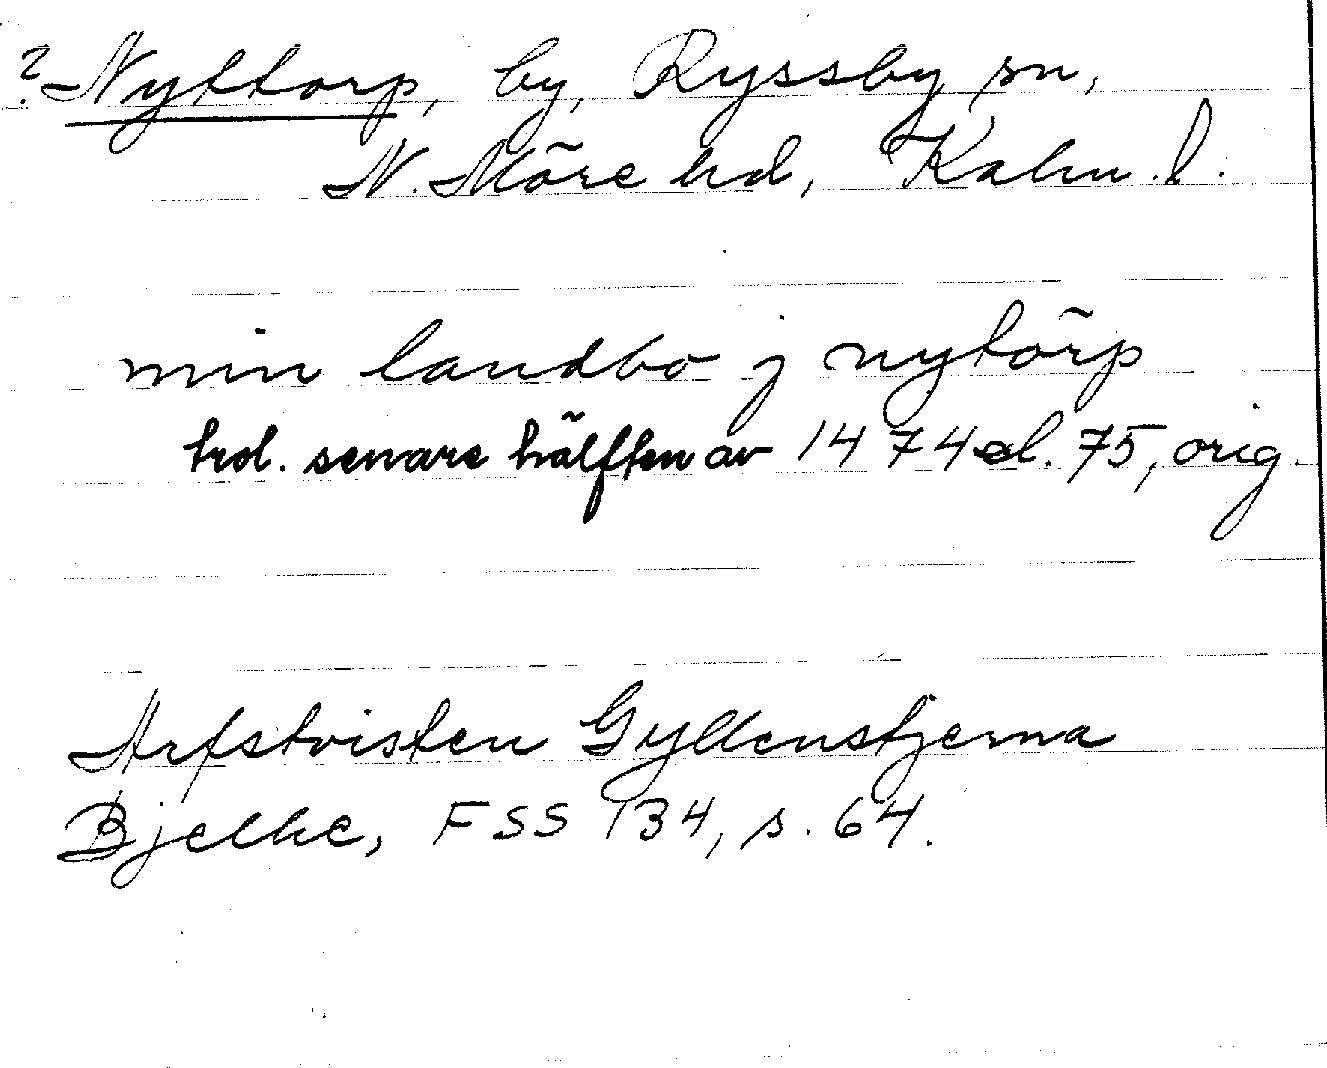 ? Nyttorp, by, Ryssby sn,
N. Möre hd, Kalm. l.
min landbo j nytörp
hrol. senare hälften av 1474 el. 75, orig.
Arfstvisten Gyllenstjerna
Bjelke, FSS 134, s. 64.